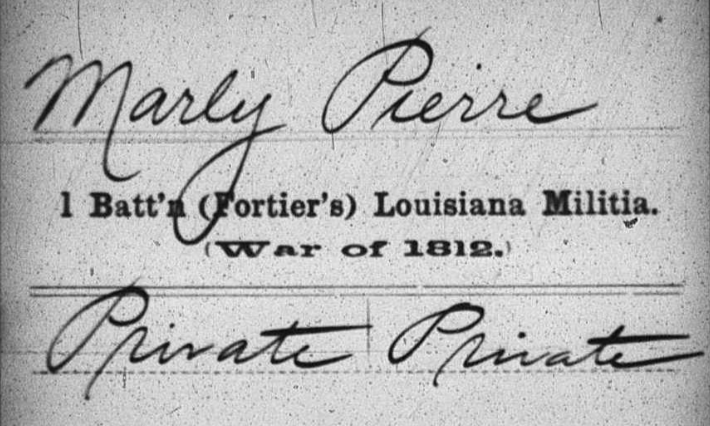 Marly Pierre
1 Batt'n (Fortier's) Louisiana Militia.
(War of 1812.)
Private Private